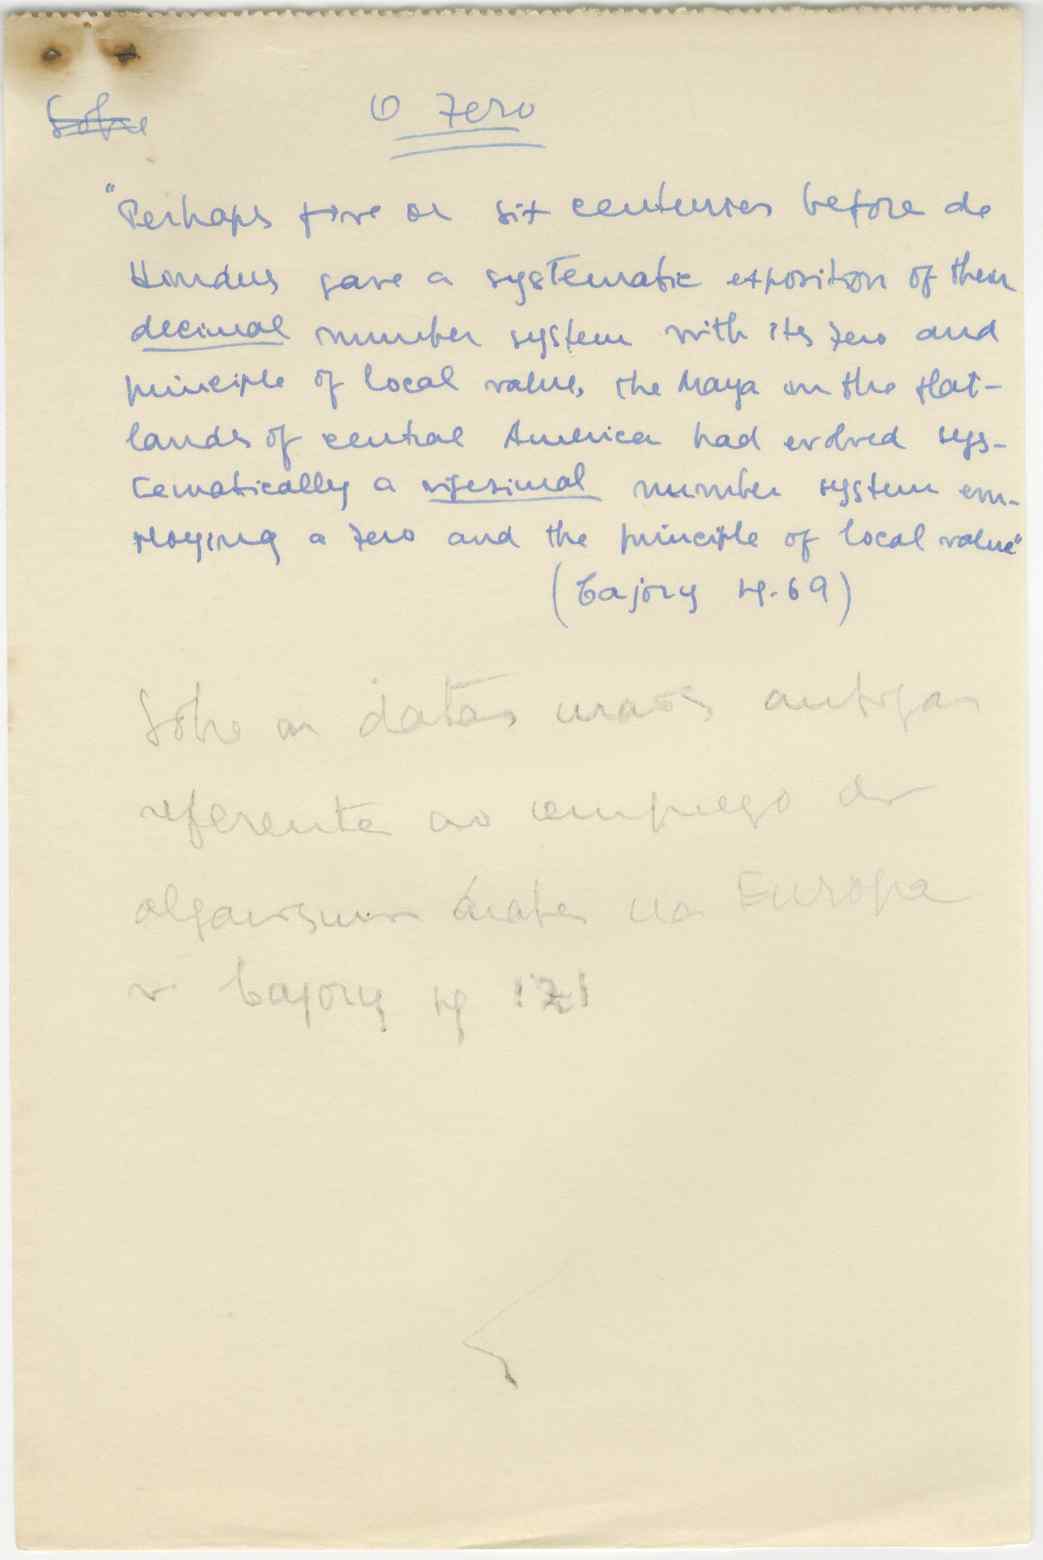 Sobre O Zero
"Perhaps five or six centuries before de
Hindus gave a systematic exposition of their
decimal number system with its zero and
principle of local value, the Maya in the flat-
lands of central America had evolved sys-
tematically a vigesimal number system em-
ploying a zero and the principle of local value"
(Cajory pg. 69)
Sobre as datas mais antigas
referente ao emprego dos
algarismos árabes na Europa
v. Cajory pg 121